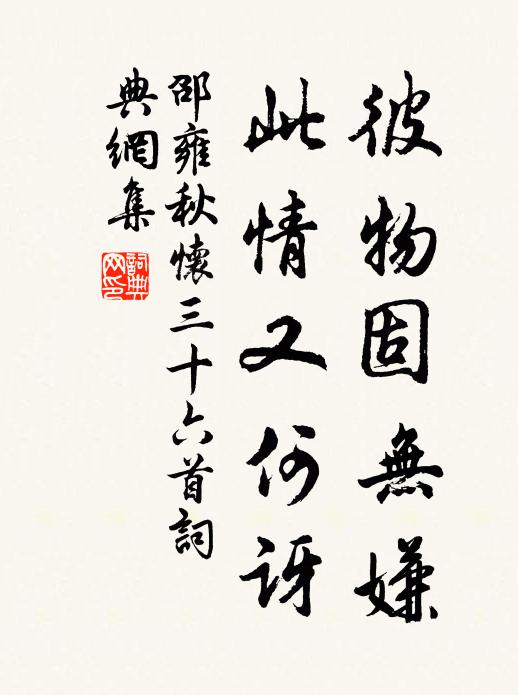 彼物固無嫌
此情又何訝
邵雍秋懷三十六首詞
典網集
詞典网印